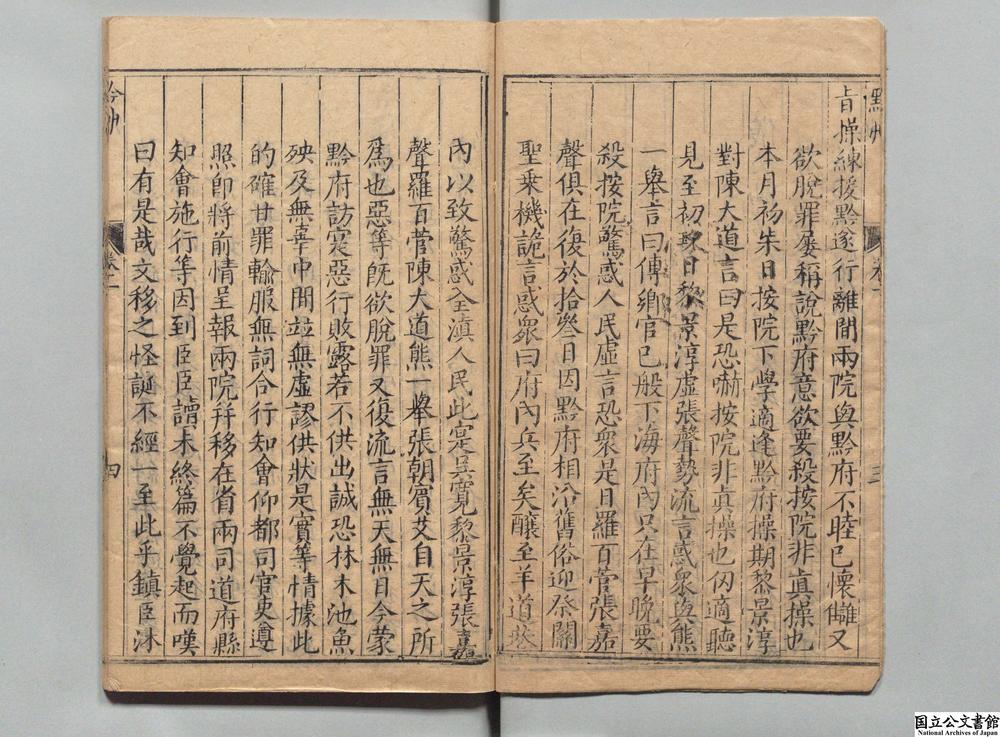 旨操練援黔遂行離間兩院與黔府不睦已懷讎又
欲脫罪屢稱說黔府意欲要殺按院非眞操也
本月初柒日按院下學適逢黔府操期黎景淳
對陳大道言曰是恐嚇按院非眞操也仭適聽
見至初 日黎景淳虛張聲勢流言惑衆與熊
一舉言曰傳鄉官已般下海府內只在早晚要
殺按院驚惑人民虛言恐衆是日羅百管張嘉
聲俱在復於拾叄日因黔府相沿舊俗迎祭關
聖乘機詭言惑衆曰府內兵至矣釀至羊道
內以致驚惑全滇人民此寔吳寬黎景淳張嘉
聲羅百管陳大道熊一舉張朝賔艾自天之所
爲也惡等旣欲脫罪又復流言無天無日今蒙
黔府訪寔惡行敗露若不供出誠恐林木池魚
殃及無辜中間並無虛謬供狀是實等情據此
的確甘罪輸服無詞合行知會仰都司官吏遵
照卽將前情呈報兩院幷移在省兩司道府縣
知會施行等因到臣臣讀未終篇不覺起而嘆
曰有是哉文移之怪誕不經一至此乎鎭臣沐
卷一
三
卷一
四
国立公文書館
National Archives of Japan